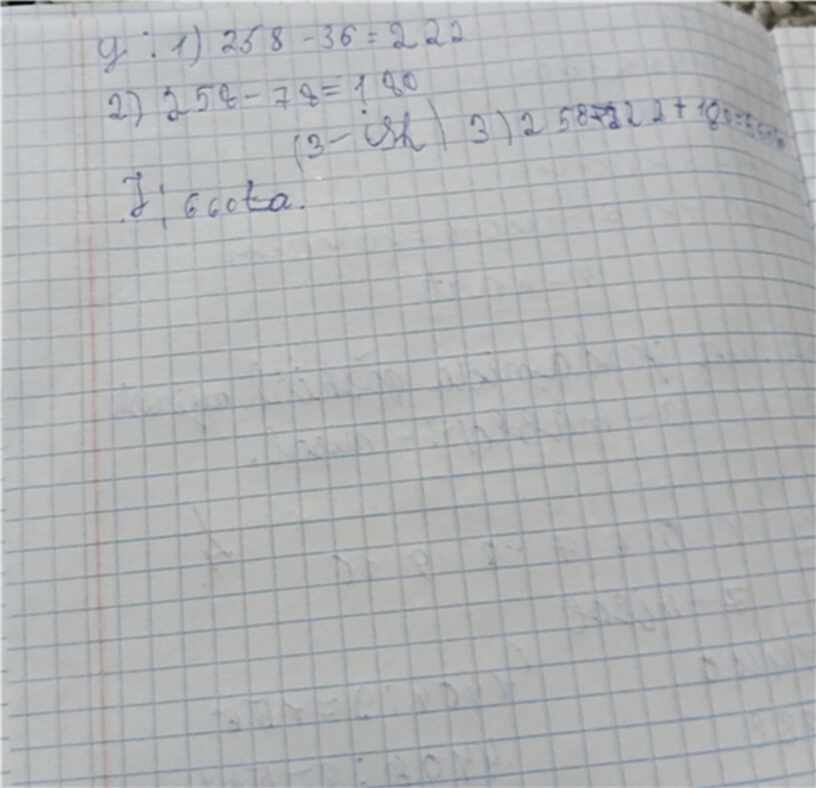 y: 1) 258-36=222
2) 258-78=180
(3-ish) 3) 258+222+180=660ta
J: 660ta.